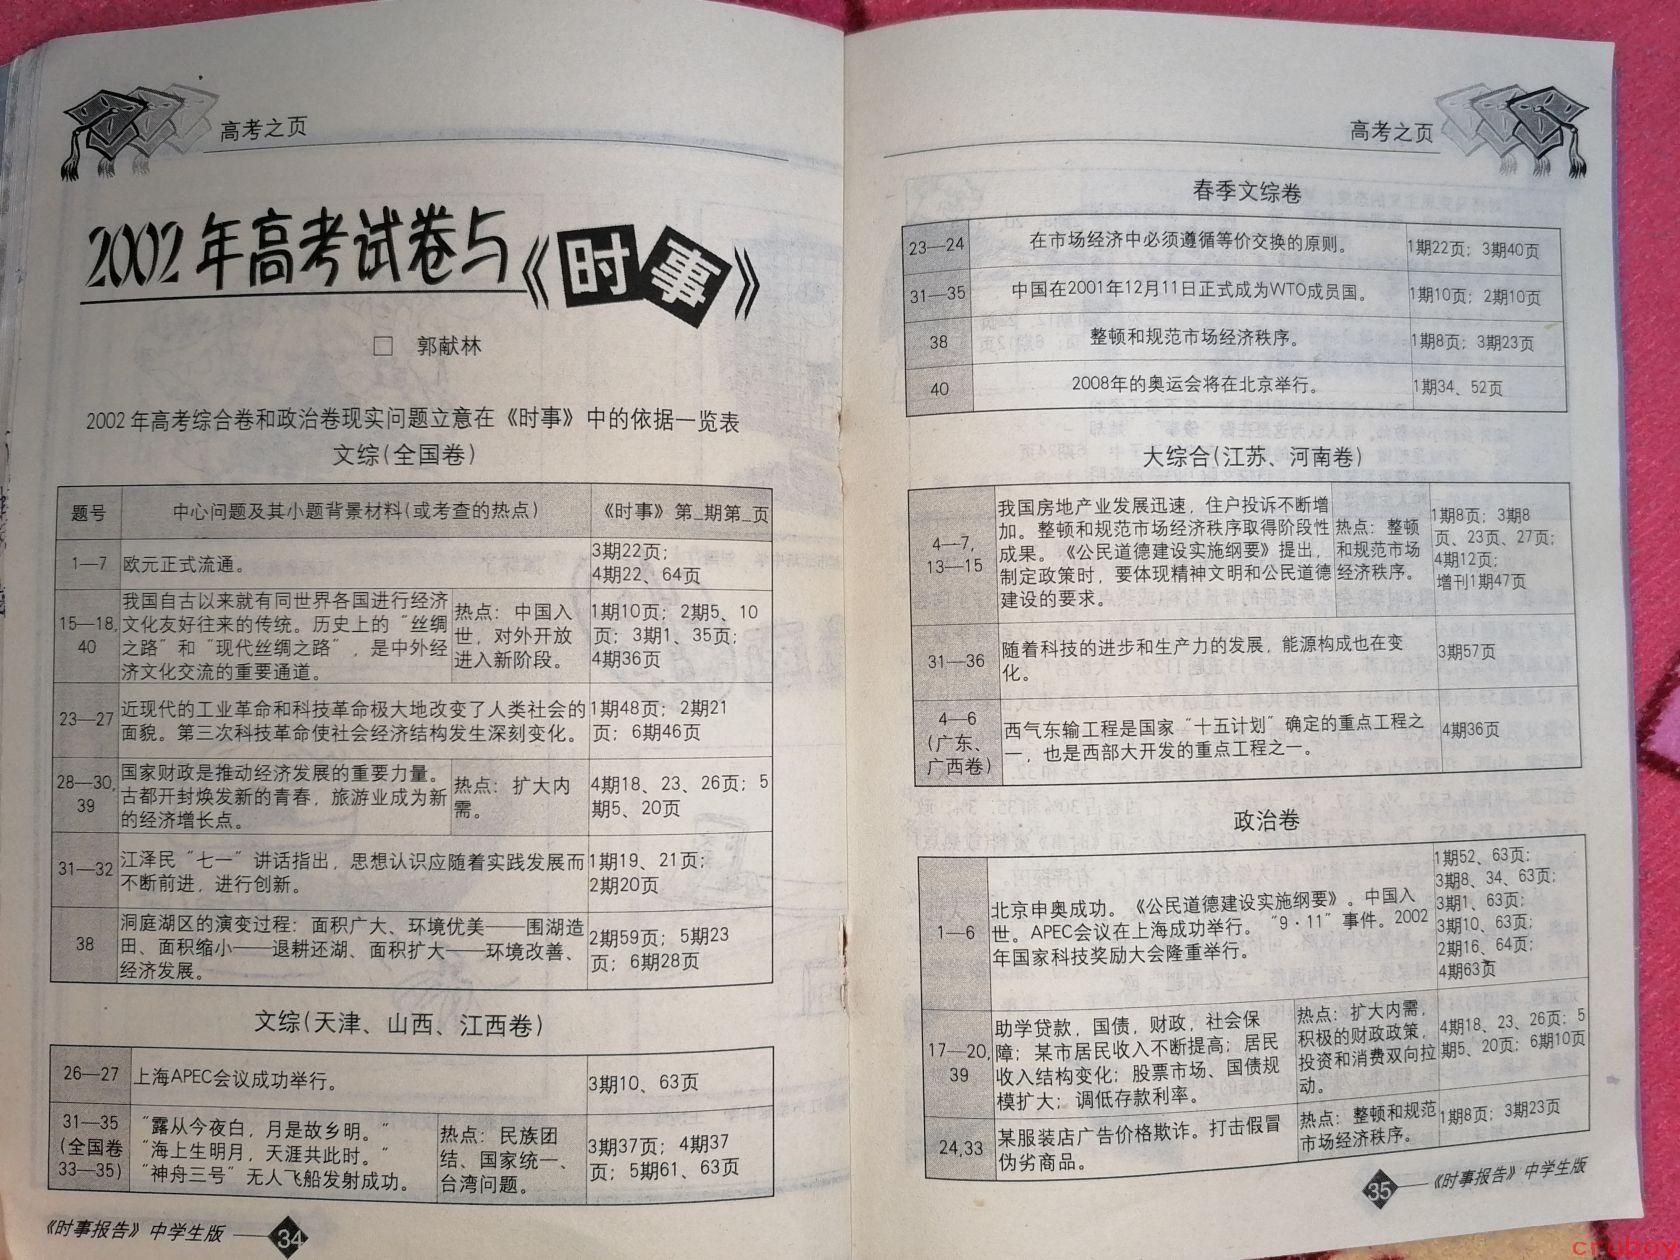 高考之页
2002年高考试卷与《时事》
□ 郭献林
2002年高考综合卷和政治卷现实问题立意在《时事》中的依据一览表
文综(全国卷)
题号 中心问题及其小题背景材料(或考查的热点) 《时事》第_期第_页
1—7 欧元正式流通。 3期22页;
4期22、64页
15—18,
40
我国自古以来就有同世界各国进行经济
文化友好往来的传统。历史上的“丝绸
之路”和“现代丝绸之路”,是中外经
济文化交流的重要通道。
热点:中国入
世,对外开放
进入新阶段。
1期10页;2期5、10
页;3期1、35页;
4期36页
23—27
近现代的工业革命和科技革命极大地改变了人类社会的
面貌。第三次科技革命使社会经济结构发生深刻变化。
1期48页;2期21
页;6期46页
28—30,
39
国家财政是推动经济发展的重要力量。
古都开封焕发新的青春,旅游业成为新
的经济增长点。
热点:扩大内
需。
4期18、23、26页;5
期5、20页
31—32
江泽民“七一”讲话指出,思想认识应随着实践发展而
不断前进,进行创新。
1期19、21页;
2期20页
38
洞庭湖区的演变过程:面积广大、环境优美——围湖造
田、面积缩小——退耕还湖、面积扩大——环境改善、
经济发展。
2期59页;5期23
页;6期28页
文综(天津、山西、江西卷)
26—27 上海APEC会议成功举行。 3期10、63页
31—35
(全国卷
33—35)
“露从今夜白,月是故乡明。”
“海上生明月,天涯共此时。”
“神舟三号”无人飞船发射成功。
热点:民族团
结、国家统一、
台湾问题。
3期37页;4期37
页;5期61、63页
《时事报告》中学生版 —— 34
高考之页
春季文综卷
23—24 在市场经济中必须遵循等价交换的原则。 1期22页;3期40页
31—35 中国在2001年12月11日正式成为WTO成员国。 1期10页;2期10页
38 整顿和规范市场经济秩序。 1期8页;3期23页
40 2008年的奥运会将在北京举行。 1期34、52页
大综合(江苏、河南卷)
4—7,
13—15
我国房地产业发展迅速,住户投诉不断增
加。整顿和规范市场经济秩序取得阶段性
成果。《公民道德建设实施纲要》提出,
制定政策时,要体现精神文明和公民道德
建设的要求。
热点:整顿
和规范市场
经济秩序。
1期8页;3期8
页、23页、27页;
4期12页;
增刊1期47页
31—36
随着科技的进步和生产力的发展,能源构成也在变
化。
3期57页
4—6
(广东、
广西卷)
西气东输工程是国家“十五计划”确定的重点工程之
一,也是西部大开发的重点工程之一。
4期36页
政治卷
1—6
北京申奥成功。《公民道德建设实施纲要》。中国入
世。APEC会议在上海成功举行。“9·11”事件。2002
年国家科技奖励大会隆重举行。
1期52、63页;
3期8、34、63页;
3期1、63页;
3期10、63页;
2期16、64页;
4期63页
17—20,
39
助学贷款,国债,财政,社会保
障;某市居民收入不断提高;居民
收入结构变化;股票市场、国债规
模扩大;调低存款利率。
热点:扩大内需,
积极的财政政策,
投资和消费双向拉
动。
4期18、23、26页;5
期5、20页;6期10页
24,33
某服装店广告价格欺诈。打击假冒
伪劣商品。
热点:整顿和规范
市场经济秩序。
1期8页;3期23页
35 ——《时事报告》中学生版